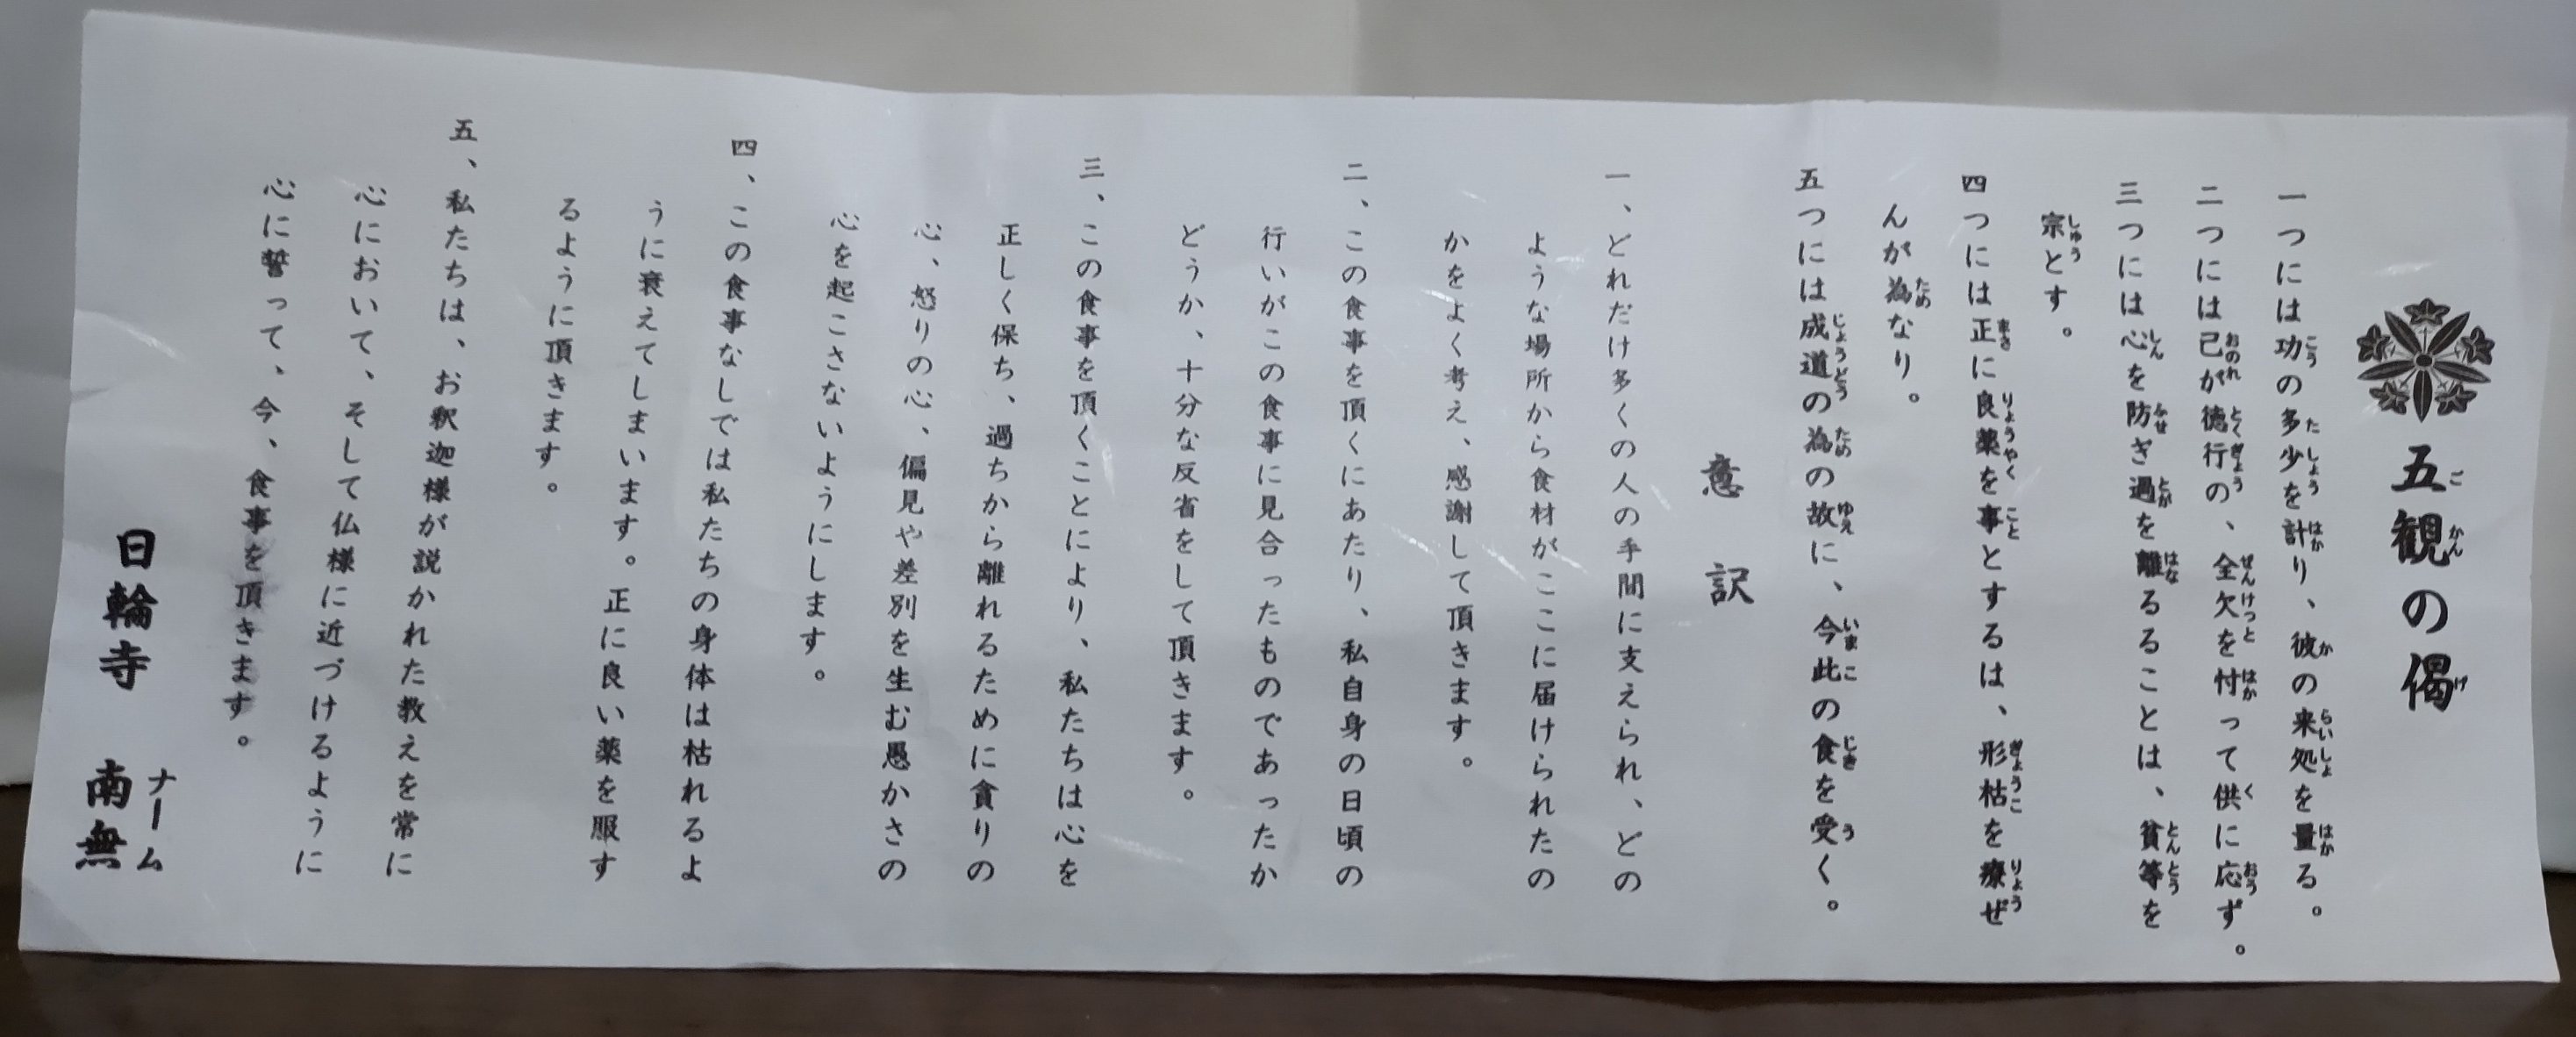 五観の偈
一つには功の多少を計り、彼の来処を量る。
二つには己が徳行の、全欠を忖って供に応ず。
三つには心を防ぎ過を離るることは、貧等を
宗とす。
四つには正に良薬を事とするは、形枯を療ぜ
んが為なり。
五つには成道の為の故に、今此の食を受く。
意訳
一、どれだけ多くの人の手間に支えられ、どの
ような場所から食材がここに届けられたの
かをよく考え、感謝して頂きます。
二、この食事を頂くにあたり、私自身の日頃の
行いがこの食事に見合ったものであったか
どうか、十分な反省をして頂きます。
三、この食事を頂くことにより、私たちは心を
正しく保ち、過ちから離れるために貪りの
心、怒りの心、偏見や差別を生む愚かさの
心を起こさないようにします。
四、この食事なしでは私たちの身体は枯れるよ
うに衰えてしまいます。正に良い薬を服す
るように頂きます。
五、私たちは、お釈迦様が説かれた教えを常に
心において、そして仏様に近づけるように
心に誓って、今、食事を頂きます。
日輪寺 南無
ナーム